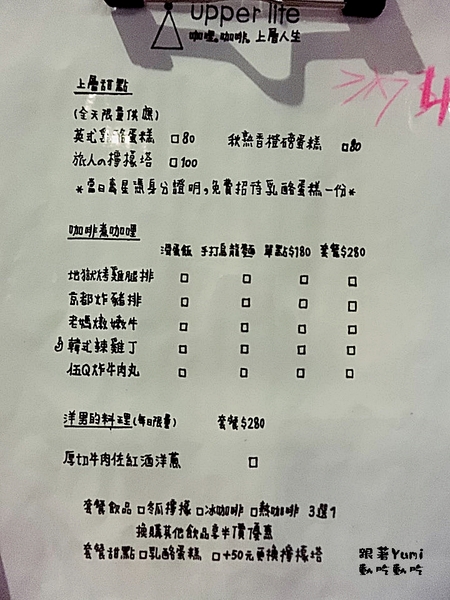 upper life
咖哩.咖啡.上層人生
上層甜點
(全天限量供應)
英式乳酪蛋糕 □80 秋熟香橙磅蛋糕 □80
旅人の檸檬塔 □100
*當日壽星憑身分證明,免費招待乳酪蛋糕一份*
咖啡煮咖哩
滑蛋飯 手打烏龍麵 單點$180 套餐$280
地獄烤雞腿排 □ □ □ □
京都炸豬排 □ □ □ □
老媽燉嫩牛 □ □ □ □
韓式辣雞丁 □ □ □ □
伍Q炸牛肉丸 □ □ □ □
洋男的料理(每日限量) 套餐$280
厚切牛肉佐紅酒洋蔥 □
套餐飲品 □冬瓜檸檬 □冰咖啡 □熱咖啡 3選1
換購其他飲品享半價優惠
套餐甜點 □乳酪蛋糕 □+50元更換檸檬塔
跟著Yumi
動吃動吃